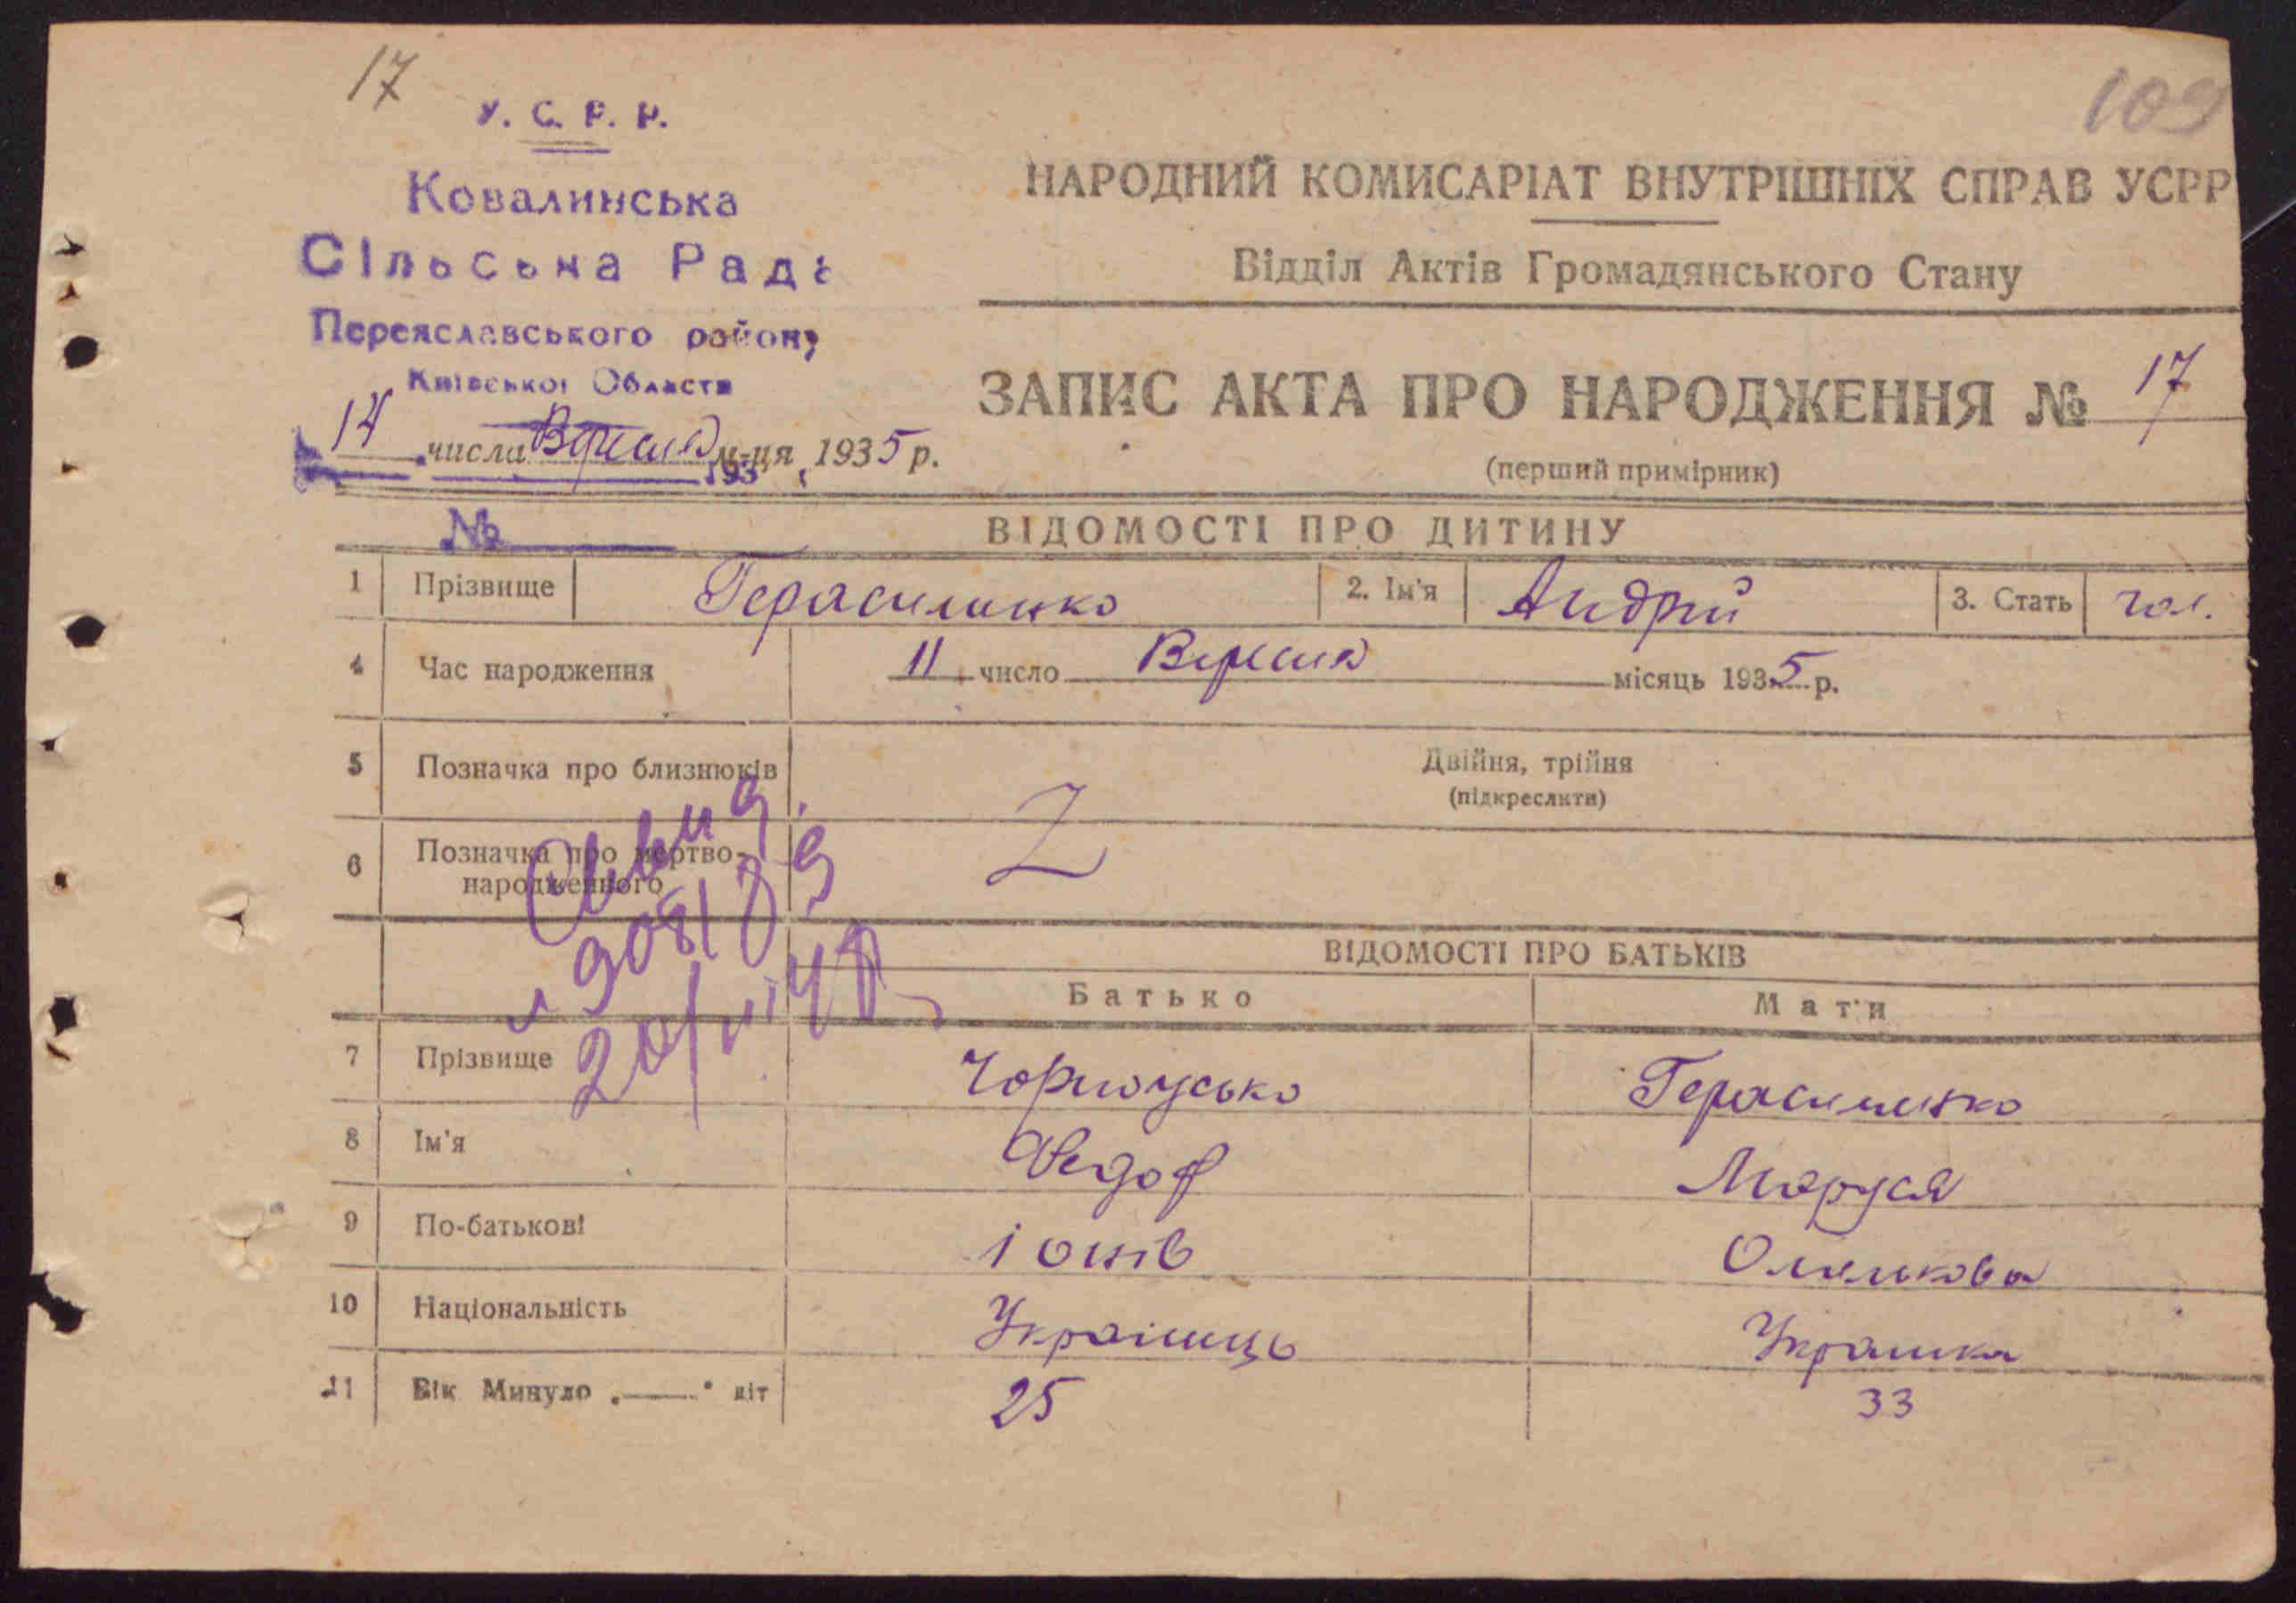 17
109
У. С. Р. Р.
Ковалинська
Сільська Рада
Переяславського району
Київської Області
14 числа Вересня м-ця 1935 р.
193
№
НАРОДНИЙ КОМИСАРІАТ ВНУТРІШНІХ СПРАВ УСРР
Відділ Актів Громадянського Стану
ЗАПИС АКТА ПРО НАРОДЖЕННЯ № 17
(перший примірник)
ВІДОМОСТІ ПРО ДИТИНУ
1 Прізвище Герасименко 2. Ім'я Андрій 3. Стать чол.
4 Час народження 11 число Вересня місяць 1935 р.
5 Позначка про близнюків Двійня, трійня
(підкреслити)
6 Позначка про мертво-
народженного
ВІДОМОСТІ ПРО БАТЬКІВ
Батько Мати
7 Прізвище Чорноусько Герасименко
8 Ім'я Федор Маруся
9 По-батькові Іонів
10 Національність Українець Українка
11 Вік Минуло „—" літ 25 33